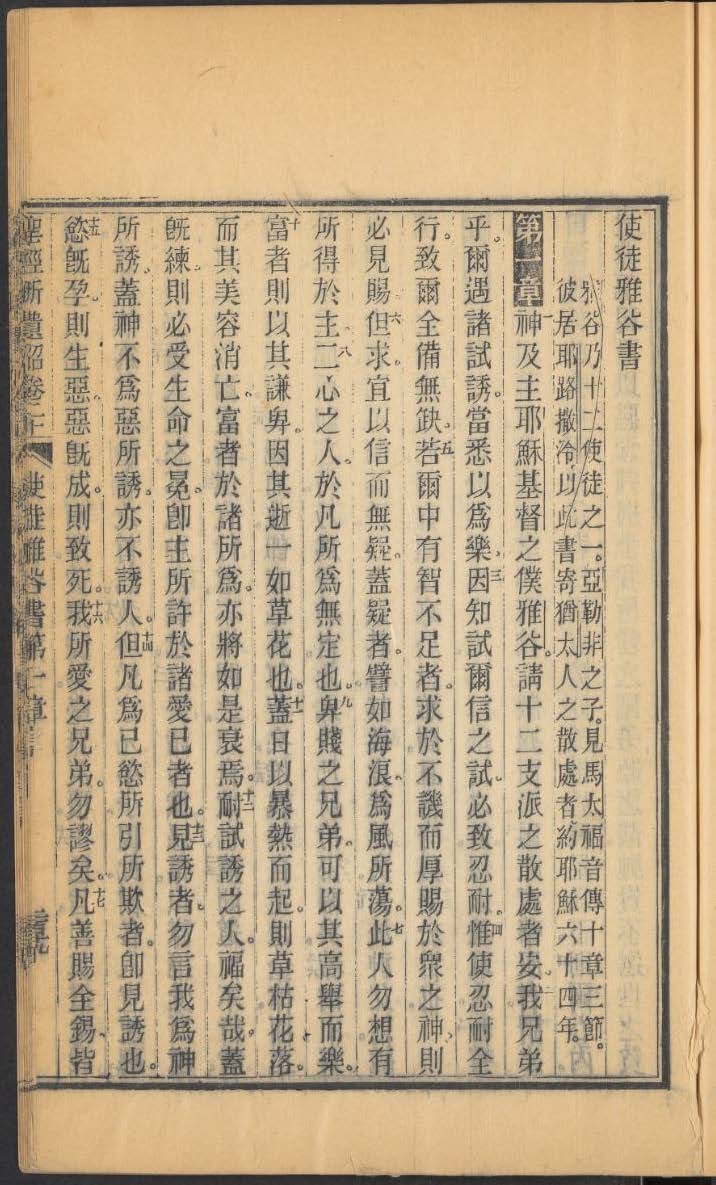 使徒雅谷書
雅谷乃十二使徒之一。亞勒非之子。見馬太福音傳十章三節。
彼居耶路撒冷以此書寄猶太人之散處者約耶穌六十四年。
第一章一神及主耶穌基督之僕雅谷。請十二支派之散處者安。二我兄弟
乎。爾遇諸試誘。當悉以為樂。三因知試爾信之試。必致忍耐。四惟使忍耐全
行。致爾全備無缺。五若爾中有智不足者。求於不譏而厚賜於衆之神、則
必見賜。六但求。宜以信而無疑。蓋疑者。譬如海浪、為風所蕩。七此人勿想有
所得於主、八二心之人、於凡所為無定也。九卑賤之兄弟。可以其高舉而樂。
十富者則以其謙卑。因其逝一如草花也。十一蓋日以暴熱而起。則草枯花落。
而其美容消亡。富者於諸所為。亦將如是衰焉。十二耐試誘之人。福矣哉。蓋
旣練。則必受生命之冕。卽主所許於諸愛己者也。十三見誘者。勿言我為神
所誘。蓋神不為惡所誘。亦不誘人。十四但凡為己慾所引所欺者。卽見誘也。
十五慾旣孕。則生惡。惡旣成。則致死。十六我所愛之兄弟。勿謬矣。十七凡善賜全錫、皆
聖經新遺詔卷下 使徒雅谷書第一章